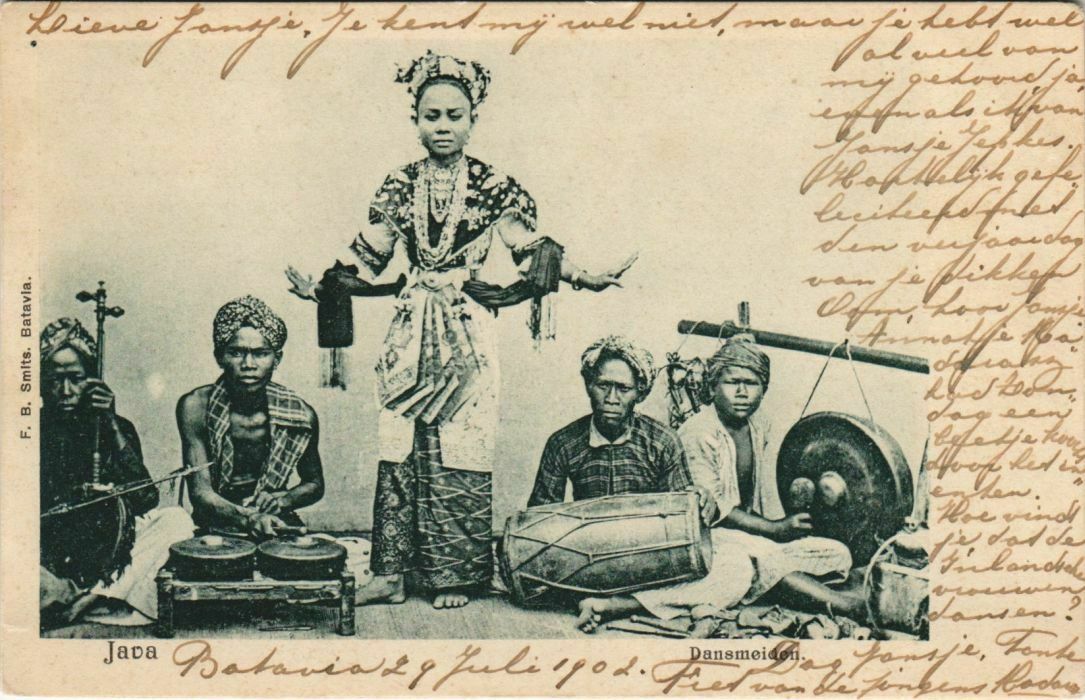 Lieve Jansje, Je kent mij wel niet, maar je hebt wel
al veel van
mij gehoord, ja,
evenals ik van
Jansje
Hartelijk gefe-
liciteerd met
den verjaardag
van je dikken
Oom, hoor Jansje
Annatje
een
door het
enten.
Hoe vindt
je dat de
Inlandsche
vrouwen
dansen?
F. B. Smits. Batavia.
Java
Dansmeiden.
Batavia 29 Juli 1902. Dag Jansje, Tante
Fiet van de